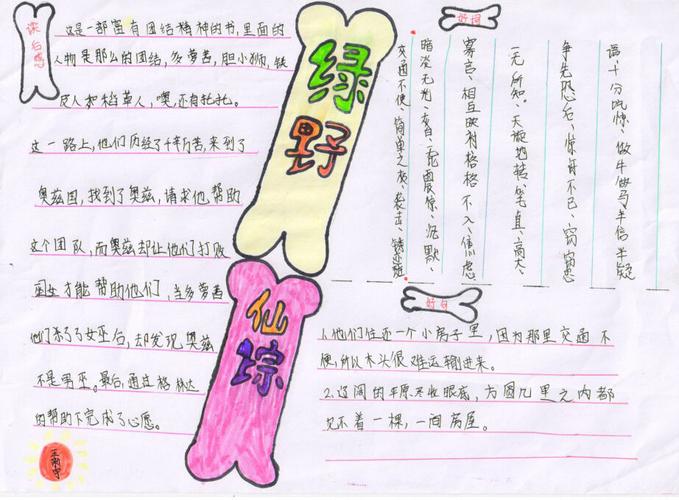 读后感
这是一部富有团结精神的书，里面的
人物是那么的团结，多萝茜，胆小狮，铁
皮人和稻草人，噢，还有托托。
这一路上，他们历经了千辛万苦，来到了
奥兹国，找到了奥兹，请求他帮助
这个团队，而奥兹却让他们打败
巫女才能帮助他们，当多萝茜
他们杀了女巫后，却发现奥兹
不是男巫。最后，通过格林达
的帮助下完成了心愿。
绿野
仙踪
好词
十分吃惊、做牛做马半信半疑
争先恐后、惊讶不已、窃窃
一无所知、天旋地转、笔直、高大、
寡言、相互映衬格格不入、焦虑
暗淡无光、沉默、
交通不便、简单
好句
1、他们住在一个小房子里，因为那里交通不
便，所以木头很难运输进来。
2、辽阔的平原尽收眼底，方圆几里之内都
见不着一棵，一间房屋。